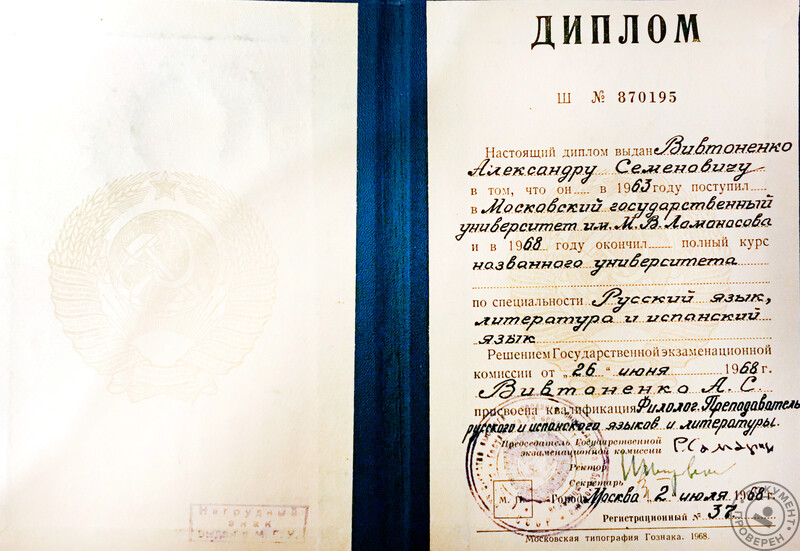 Нагрудный
знак
М.Г.У.
ДИПЛОМ
Ш № 870195
Настоящий диплом выдан Вивтоненко
Александру Семеновичу
в том, что он в 1963 году поступил
в Московский государственный
университет им. М.В. Ломоносова
и в 1968 году окончил полный курс
названного университета
по специальности Русский язык,
литература и испанский
язык
Решением Государственной экзаменационной
комиссии от „26“ июня 1968 г.
Вивтоненко А. С.
присвоена квалификация Филолог. Преподаватель
русского и испанского языков и литературы.
Председатель Государственной
экзаменационной комиссии
Ректор
Секретарь
М. П.
Город Москва 2 июля 1968 г.
Регистрационный № 37
Московская типография Гознака. 1968.
ДОКУМЕНТ ПРОВЕРЕН